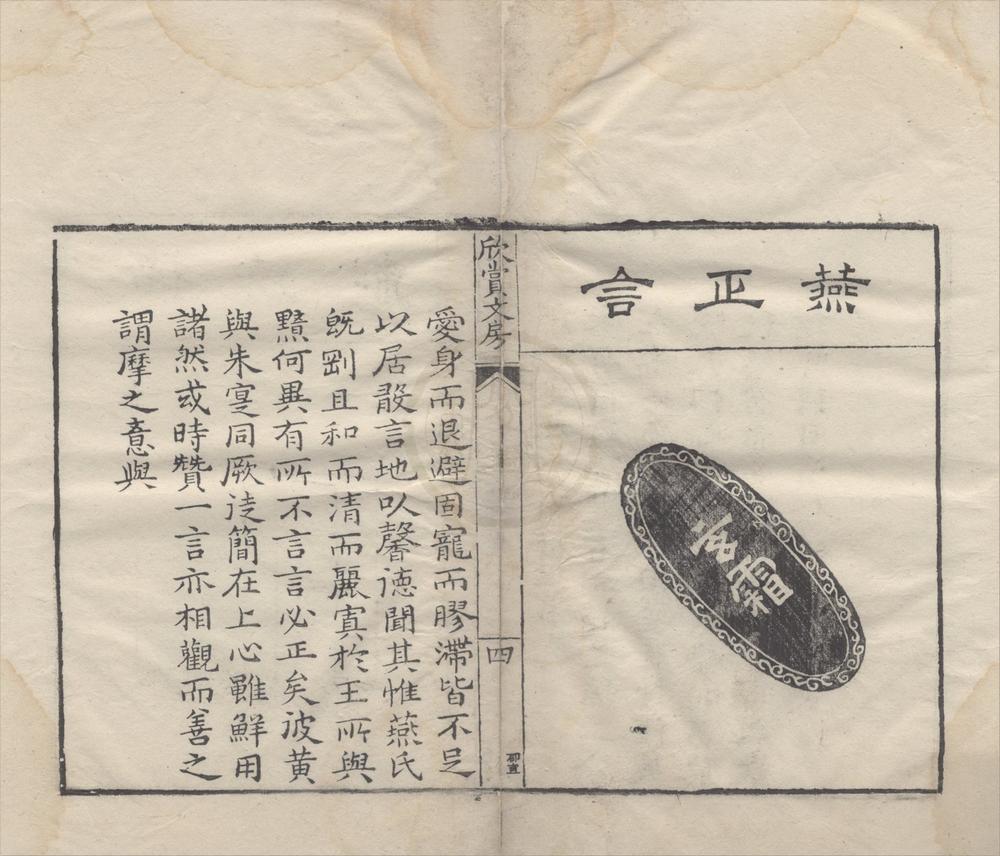 燕正言
玄霜
欣賞文房
四
愛身而退避固寵而膠滯皆不足
以居骰言地以馨德聞其惟燕氏
既剛且和而清而麗寘於王所與
黯何異有所不言言必正矣彼黄
與朱寔同厥徒簡在上心雖鮮用
諸然或時贊一言亦相觀而善之
謂摩之意與